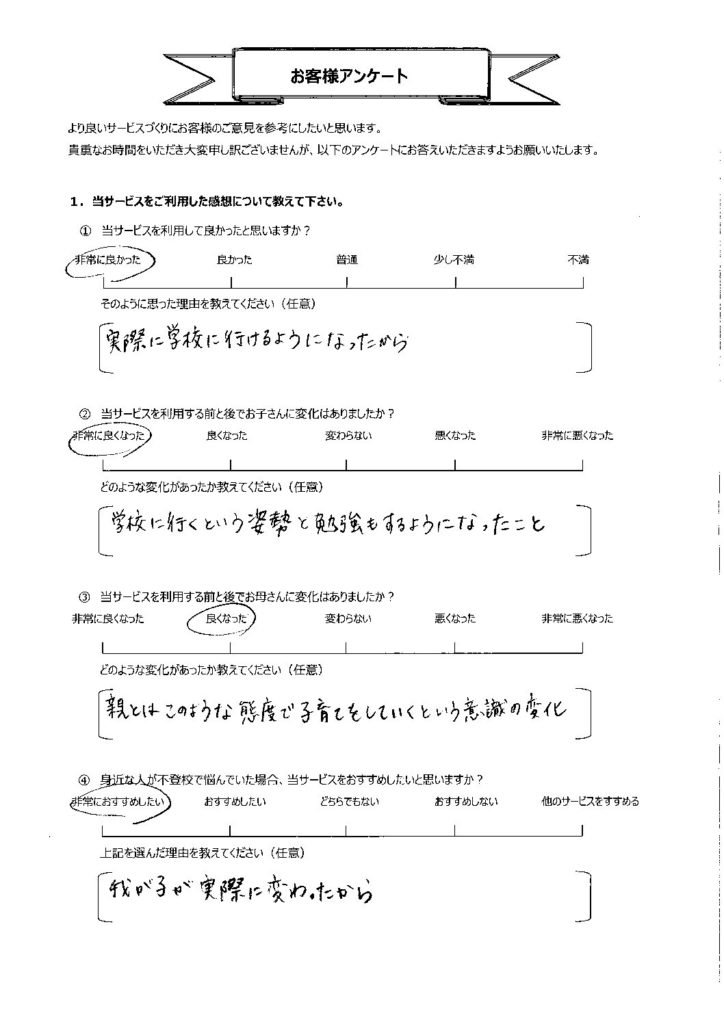 お客様アンケート
より良いサービスづくりにお客様のご意見を参考にしたいと思います。
貴重なお時間をいただき大変申し訳ございませんが、以下のアンケートにお答えいただきますようお願いいたします。
1．当サービスをご利用した感想について教えて下さい。
① 当サービスを利用して良かったと思いますか？
非常に良かった 良かった 普通 少し不満 不満
そのように思った理由を教えてください（任意）
実際に学校に行けるようになったから
② 当サービスを利用する前と後でお子さんに変化はありましたか？
非常に良くなった 良くなった 変わらない 悪くなった 非常に悪くなった
どのような変化があったか教えてください（任意）
学校に行くという姿勢と勉強もするようになったこと
③ 当サービスを利用する前と後でお母さんに変化はありましたか？
非常に良くなった 良くなった 変わらない 悪くなった 非常に悪くなった
どのような変化があったか教えてください（任意）
親とはこのような態度で子育てをしていくという意識の変化
④ 身近な人が不登校で悩んでいた場合、当サービスをおすすめしたいと思いますか？
非常におすすめしたい おすすめしたい どちらでもない おすすめしない 他のサービスをすすめる
上記を選んだ理由を教えてください（任意）
我が子が実際に変わったから